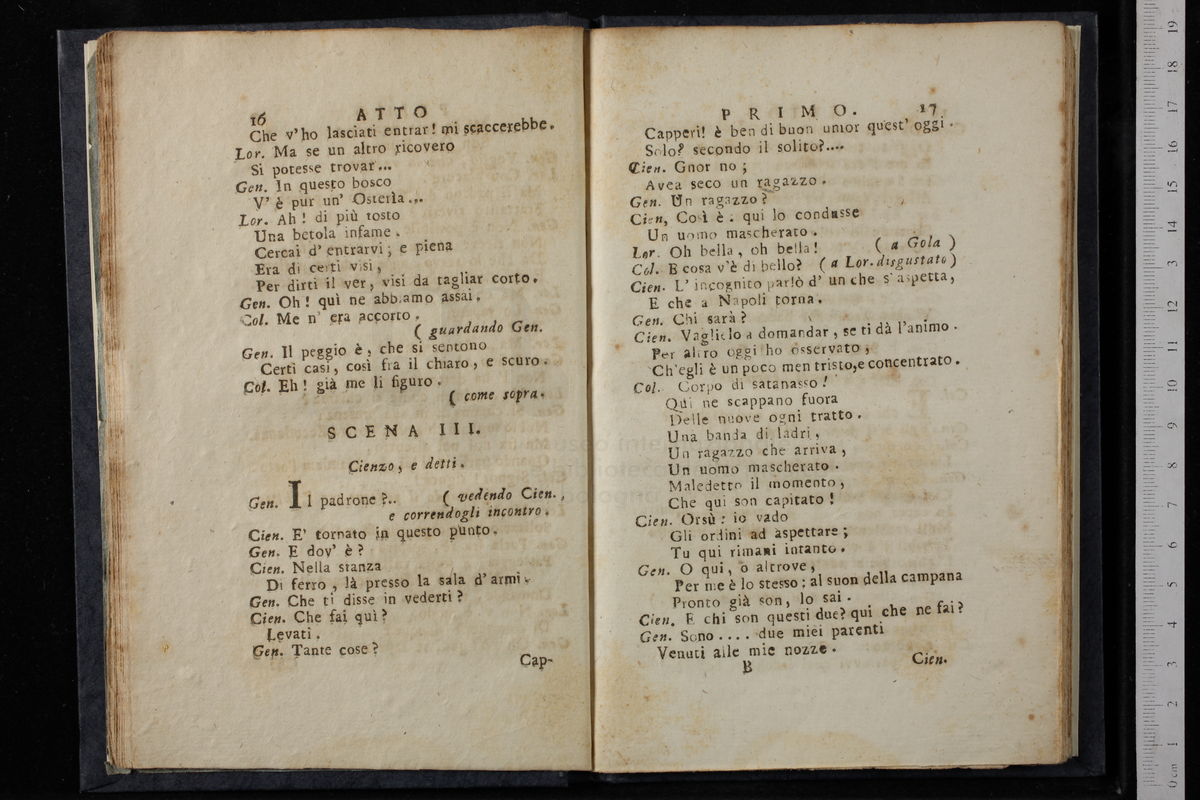 16 ATTO
Che v'ho lasciati entrar! mi scaccerebbe.
Lor. Ma se un altro ricovero
Si potesse trovar...
Gen. In questo bosco
V'è pur un' Osterìa...
Lor. Ah! di più tosto
Una betola infame.
Cercai d'entrarvi; e piena
Era di certi visi,
Per dirti il ver, visi da tagliar corto.
Gen. Oh! quì ne abbiamo assai.
Col. Me n' era accorto.
( guardando Gen.
Gen. Il peggio è, che si sentono
Certi casi, così fra il chiaro, e scuro.
Col. Eh! già me li figuro.
( come sopra.
SCENA III.
Cienzo, e detti.
Gen. Il padrone?.. ( vedendo Cien.,
e correndogli incontro.
Cien. E' tornato in questo punto.
Gen. E dov' è?
Cien. Nella stanza
Di ferro, là presso la sala d'armi.
Gen. Che ti disse in vederti?
Cien. Che fai quì?
Levati.
Gen. Tante cose?
Cap-
PRIMO. 17
Capperi! è ben di buon umor quest' oggi.
Solo? secondo il solito?....
Cien. Gnor no;
Avea seco un ragazzo.
Gen. Un ragazzo?
Cien, Così è: qui lo condusse
Un uomo mascherato.
Lor. Oh bella, oh bella! ( a Gola )
Col. E cosa v'è di bello? ( a Lor. disgustato )
Cien. L' incognito parlò d' un che s'aspetta,
E che a Napoli torna.
Gen. Chi sarà?
Cien. Vaglielo a domandar, se ti dà l'animo.
Per altro oggi ho osservato,
Ch'egli è un poco men tristo,e concentrato.
Col. Corpo di satanasso!
Qui ne scappano fuora
Delle nuove ogni tratto.
Una banda di ladri,
Un ragazzo che arriva,
Un uomo mascherato.
Maledetto il momento,
Che qui son capitato!
Cien. Orsù: io vado
Gli ordini ad aspettare;
Tu qui rimani intanto.
Gen. O qui, o altrove,
Per me è lo stesso: al suon della campana
Pronto già son, lo sai.
Cien. E chi son questi due? qui che ne fai?
Gen. Sono.... due miei parenti
Venuti alle mie nozze.
B Cien.
0 cm 1 2 3 4 5 6 7 8 9 10 11 12 13 14 15 16 17 18 19